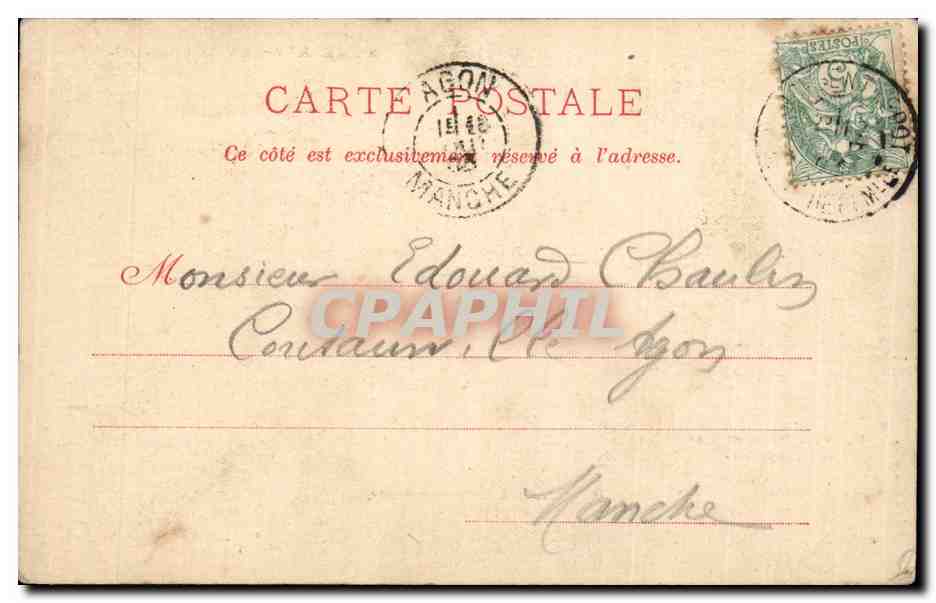 CARTE POSTALE
Ce côté est exclusivement réservé à l'adresse.
AGON
MANCHE
POSTES
Monsieur Edouard Chaulin
Coutainville Agon
Manche
CPAPHIL